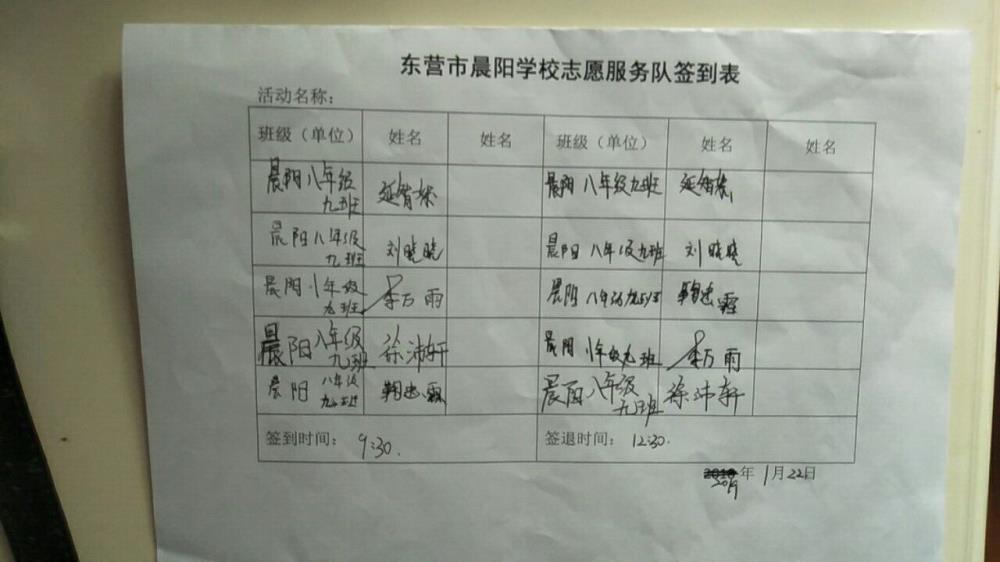 东营市晨阳学校志愿服务队签到表
活动名称：
班级（单位） 姓名 姓名 班级（单位） 姓名 姓名
晨阳八年级 晨阳八年级九班
九班
晨阳八年级 刘晓晓 晨阳八年级九班 刘晓晓
九班
晨阳八年级 李万雨 晨阳八年级九班
九班
晨阳八年级 徐沛轩 晨阳八年级九班 李万雨
九班
晨阳 八年级 晨阳八年级 徐沛轩
九班 九班
签到时间： 9:30. 签退时间： 12:30.
2019年1月22日